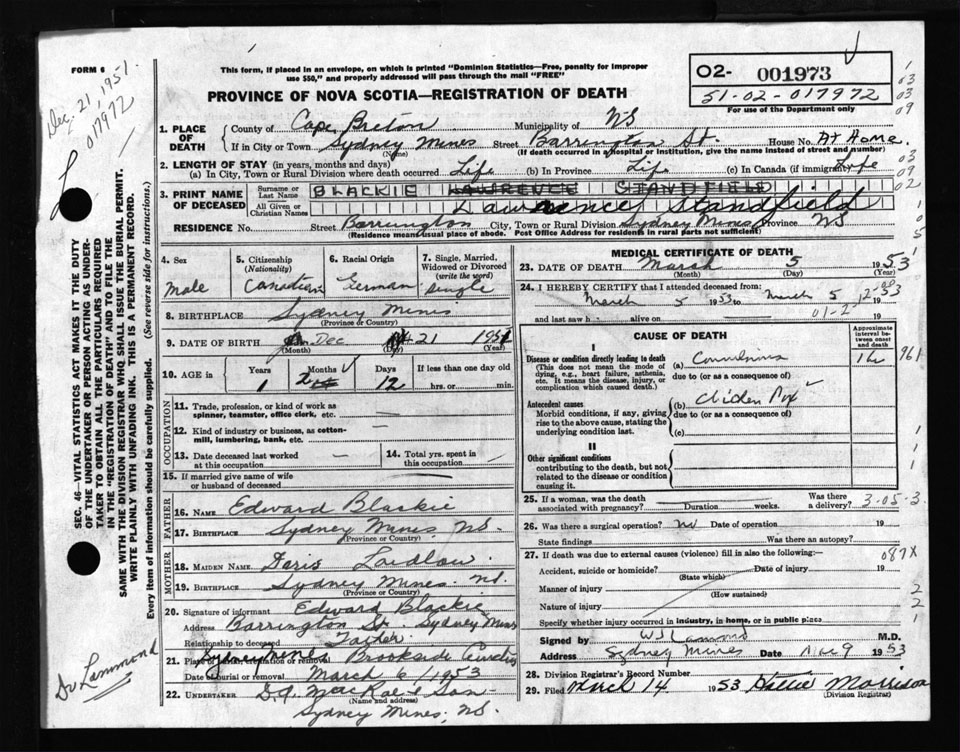 FORM 6
Dec. 21, 1951.
017972
This form, if placed in an envelope, on which is printed "Dominion Statistics—Free, penalty for improper
use $50," and properly addressed will pass through the mail "FREE"
02- 001973
51-02-017972
For use of the Department only
PROVINCE OF NOVA SCOTIA—REGISTRATION OF DEATH
1. PLACE OF DEATH County of Cape Breton Municipality of NS
If in City or Town Sydney Mines Street Barrington St. House No. At Home.
(Name) (If death occurred in a hospital or institution, give the name instead of street and number)
2. LENGTH OF STAY (in years, months and days)
(a) In City, Town or Rural Division where death occurred Life (b) In Province Life (c) In Canada (if immigrant) Life
3. PRINT NAME OF DECEASED Surname or Last Name BLACKIE LAWRENCE STANDFIELD
All Given or Christian Names Lawrence Standfield
RESIDENCE No. Street Barrington City, Town or Rural Division Sydney Mines Province NS
(Residence means usual place of abode. Post Office Address for residents in rural parts not sufficient)
4. Sex Male
5. Citizenship (Nationality) Canadian
6. Racial Origin German
7. Single, Married, Widowed or Divorced (write the word) single
8. BIRTHPLACE Sydney Mines
(Province or Country)
9. DATE OF BIRTH Dec 21 1951
(Month) (Day) (Year)
10. AGE in Years 1 Months 2 Days 12 If less than one day old
hrs. or min.
OCCUPATION
11. Trade, profession, or kind of work as
spinner, teamster, office clerk, etc.
12. Kind of industry or business, as cotton-
mill, lumbering, bank, etc.
13. Date deceased last worked
at this occupation
14. Total yrs. spent in
this occupation
15. If married give name of wife
or husband of deceased
FATHER
16. NAME Edward Blackie
17. BIRTHPLACE Sydney Mines, NS.
(Province or Country)
MOTHER
18. MAIDEN NAME Doris Laidlow
19. BIRTHPLACE Sydney Mines. NS.
(Province or Country)
20. Signature of informant Edward Blackie
Address Barrington St. Sydney Mines
Relationship to deceased Father
21. Place of burial, cremation or removal Sydney Mines Brookside
Date of burial or removal March 6 1953
22. UNDERTAKER D.J. MacRae & Son
(Name and address)
Sydney Mines, NS.
MEDICAL CERTIFICATE OF DEATH
23. DATE OF DEATH March 5 1953
(Month) (Day) (Year)
24. I HEREBY CERTIFY that I attended deceased from:
March 5 1953 to March 5 1953
and last saw h alive on 19
CAUSE OF DEATH
Approximate interval between onset and death
I
Disease or condition directly leading to death
(This does not mean the mode of
dying, e.g., heart failure, asthenia,
etc. It means the disease, injury, or
complication which caused death.)
(a) Convulsions
due to (or as a consequence of)
961
Antecedent causes
Morbid conditions, if any, giving
rise to the above cause, stating the
underlying condition last.
(b) Chicken Pox
due to (or as a consequence of)
(c)
II
Other significant conditions
contributing to the death, but not
related to the disease or condition
causing it.
25. If a woman, was the death
associated with pregnancy? Duration weeks. Was there
a delivery? 3-05-3.
26. Was there a surgical operation? No Date of operation 19
State findings Was there an autopsy?
27. If death was due to external causes (violence) fill in also the following:— 087X
Accident, suicide or homicide? Date of injury 19
(State which)
Manner of injury
(How sustained)
Nature of injury
Specify whether injury occurred in industry, in home, or in public place
Signed by M.D.
Address Sydney Mines Date 9 1953
28. Division Registrar's Record Number
29. Filed March 14 1953 Hattie Morrison
(Division Registrar)
SEC. 46—VITAL STATISTICS ACT MAKES IT THE DUTY
OF THE UNDERTAKER OR PERSON ACTING AS UNDER-
TAKER TO OBTAIN ALL THE PARTICULARS REQUIRED
IN THE "REGISTRATION OF DEATH" AND TO FILE THE
SAME WITH THE DIVISION REGISTRAR WHO SHALL ISSUE THE BURIAL PERMIT.
WRITE PLAINLY WITH UNFADING INK. THIS IS A PERMANENT RECORD.
Every item of information should be carefully supplied. (See reverse side for instructions.)
Dr Lammond